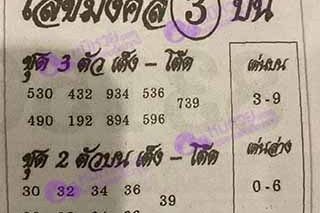 เลขมงคล 3 บน
ชุด 3 ตัว เต็ง - โต๊ด
530 432 934 536
739
490 192 894 596
เด่นบน
3-9
ชุด 2 ตัวบน เต็ง - โต๊ด
30 32 34 36
39
เด่นล่าง
0-6